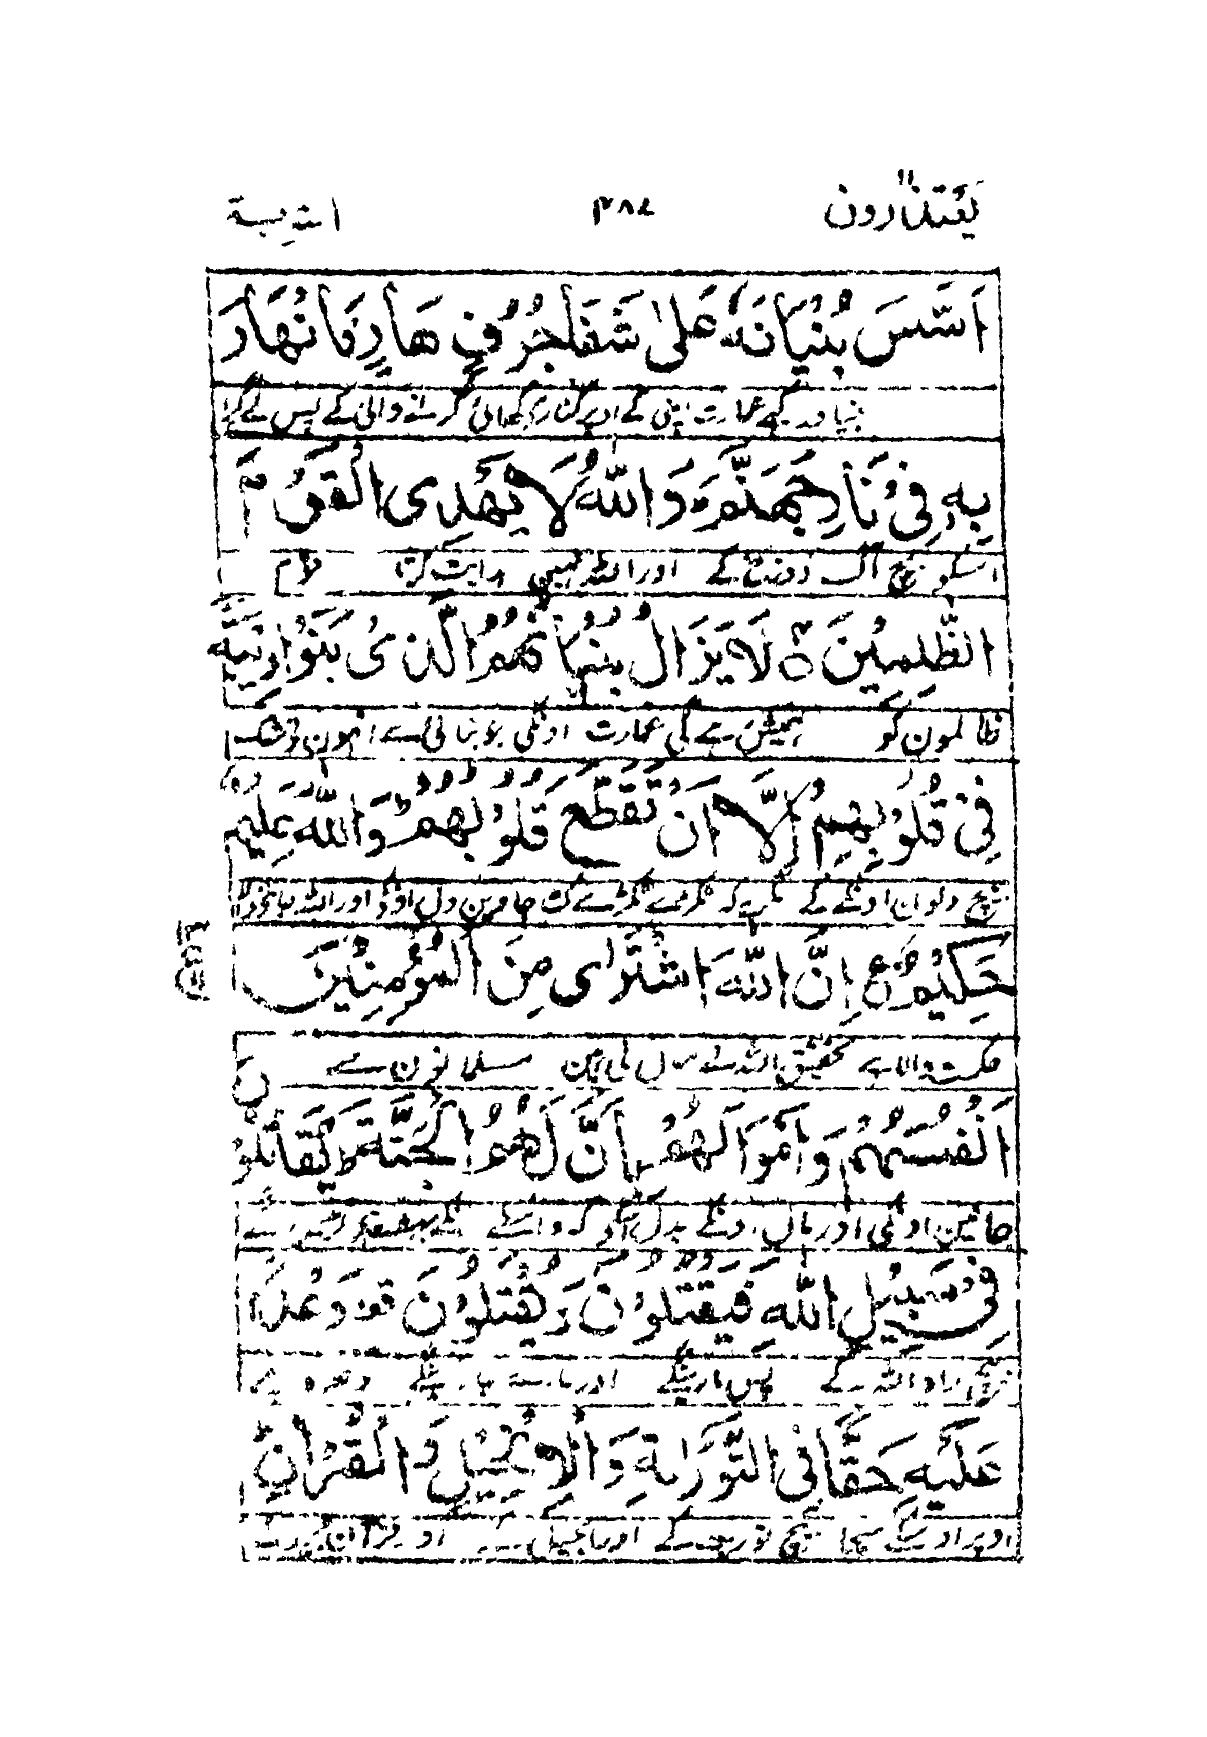 یعتذرون ۱۱ ۳۸۷ التوبة
اَسَّسَ بُنْيَانَهٗ عَلٰى شَفَا جُرُفٍ هَارٍ فَانْهَارَ
بنیاد رکھے عمارت اپنی کے اوپر کنارے کھائی گرنے والی کے پس لے گرا
بِهٖ فِیْ نَارِ جَهَنَّمَ وَاللّٰهُ لَا يَهْدِی الْقَوْمَ
اسکو بیچ آگ دوزخ کے اور اللہ نہیں ہدایت کرتا قوم
الظّٰلِمِيْنَ ۝ لَا يَزَالُ بُنْيَانُهُمُ الَّذِیْ بَنَوْا رِيْبَةً
ظالمون کو ہمیش رہے گی عمارت اونکی جو بنائی ہے انہون نے شک
فِیْ قُلُوْبِهِمْ اِلَّا اَنْ تَقَطَّعَ قُلُوْبُهُمْ وَاللّٰهُ عَلِيْمٌ
بیچ دلون اونکے کے مگر یہ کہ ٹکڑے ٹکڑے ہو جاوین دل اونکے اور اللہ جاننے والا
حَكِيْمٌ ع اِنَّ اللّٰهَ اشْتَرٰى مِنَ الْمُؤْمِنِيْنَ
حکمت والا ہے تحقیق اللہ نے مول لی ہین مسلمانون سے
اَنْفُسَهُمْ وَاَمْوَالَهُمْ بِاَنَّ لَهُمُ الْجَنَّةَ يُقَاتِلُوْنَ
جانین اونکی اور مال اونکے بدلے اسکے کہ واسطے اونکے بہشت ہے
فِیْ سَبِيْلِ اللّٰهِ فَيَقْتُلُوْنَ وَيُقْتَلُوْنَ وَعْدًا
بیچ راہ اللہ کے پس مارینگے اور مارے جاوینگے وعدہ ہے
عَلَيْهِ حَقًّا فِی التَّوْرٰىةِ وَالْاِنْجِيْلِ وَالْقُرْاٰنِ
اوپر اوسکے سچا بیچ توریت کے اور انجیل کے اور قرآن کے